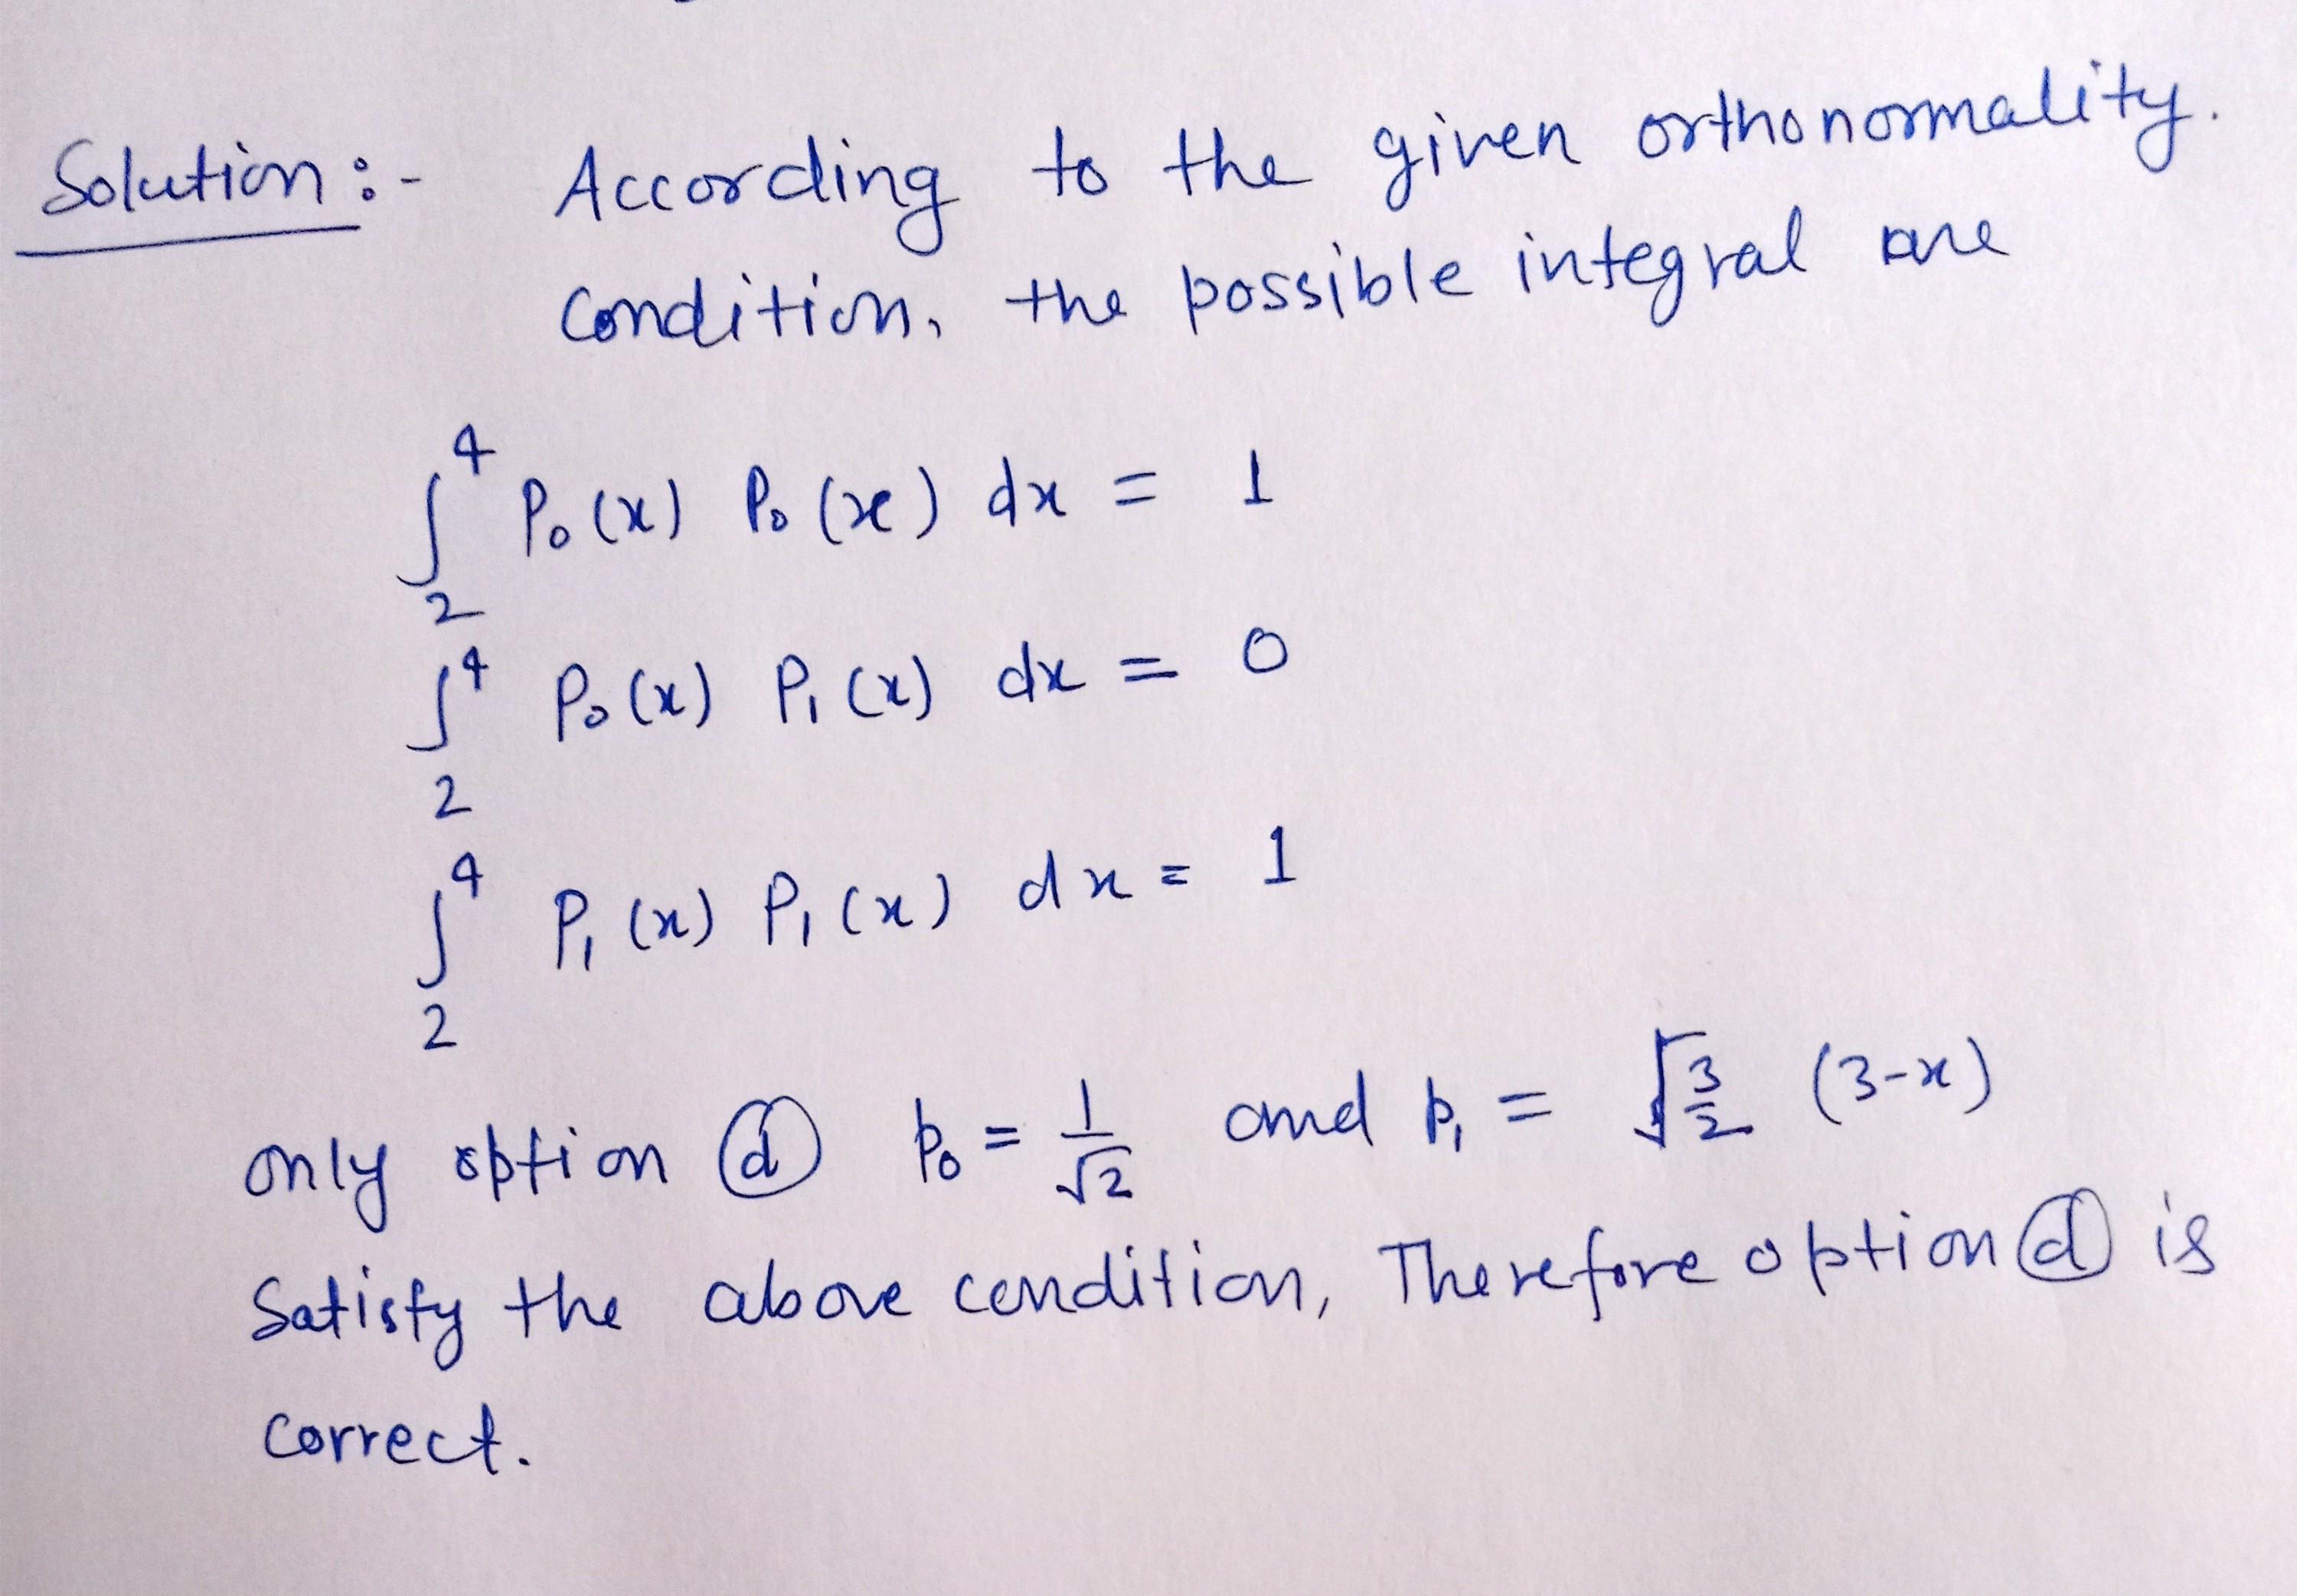 Solution :- According to the given orthonormality.
condition, the possible integral are
∫₂⁴ P₀(x) P₀(x) dx = 1
∫₂⁴ P₀(x) P₁(x) dx = 0
∫₂⁴ P₁(x) P₁(x) dx = 1
only option ⓓ p₀ = 1/√2 and p₁ = √(3/2) (3-x)
Satisfy the above condition, Therefore option ⓓ is
correct.